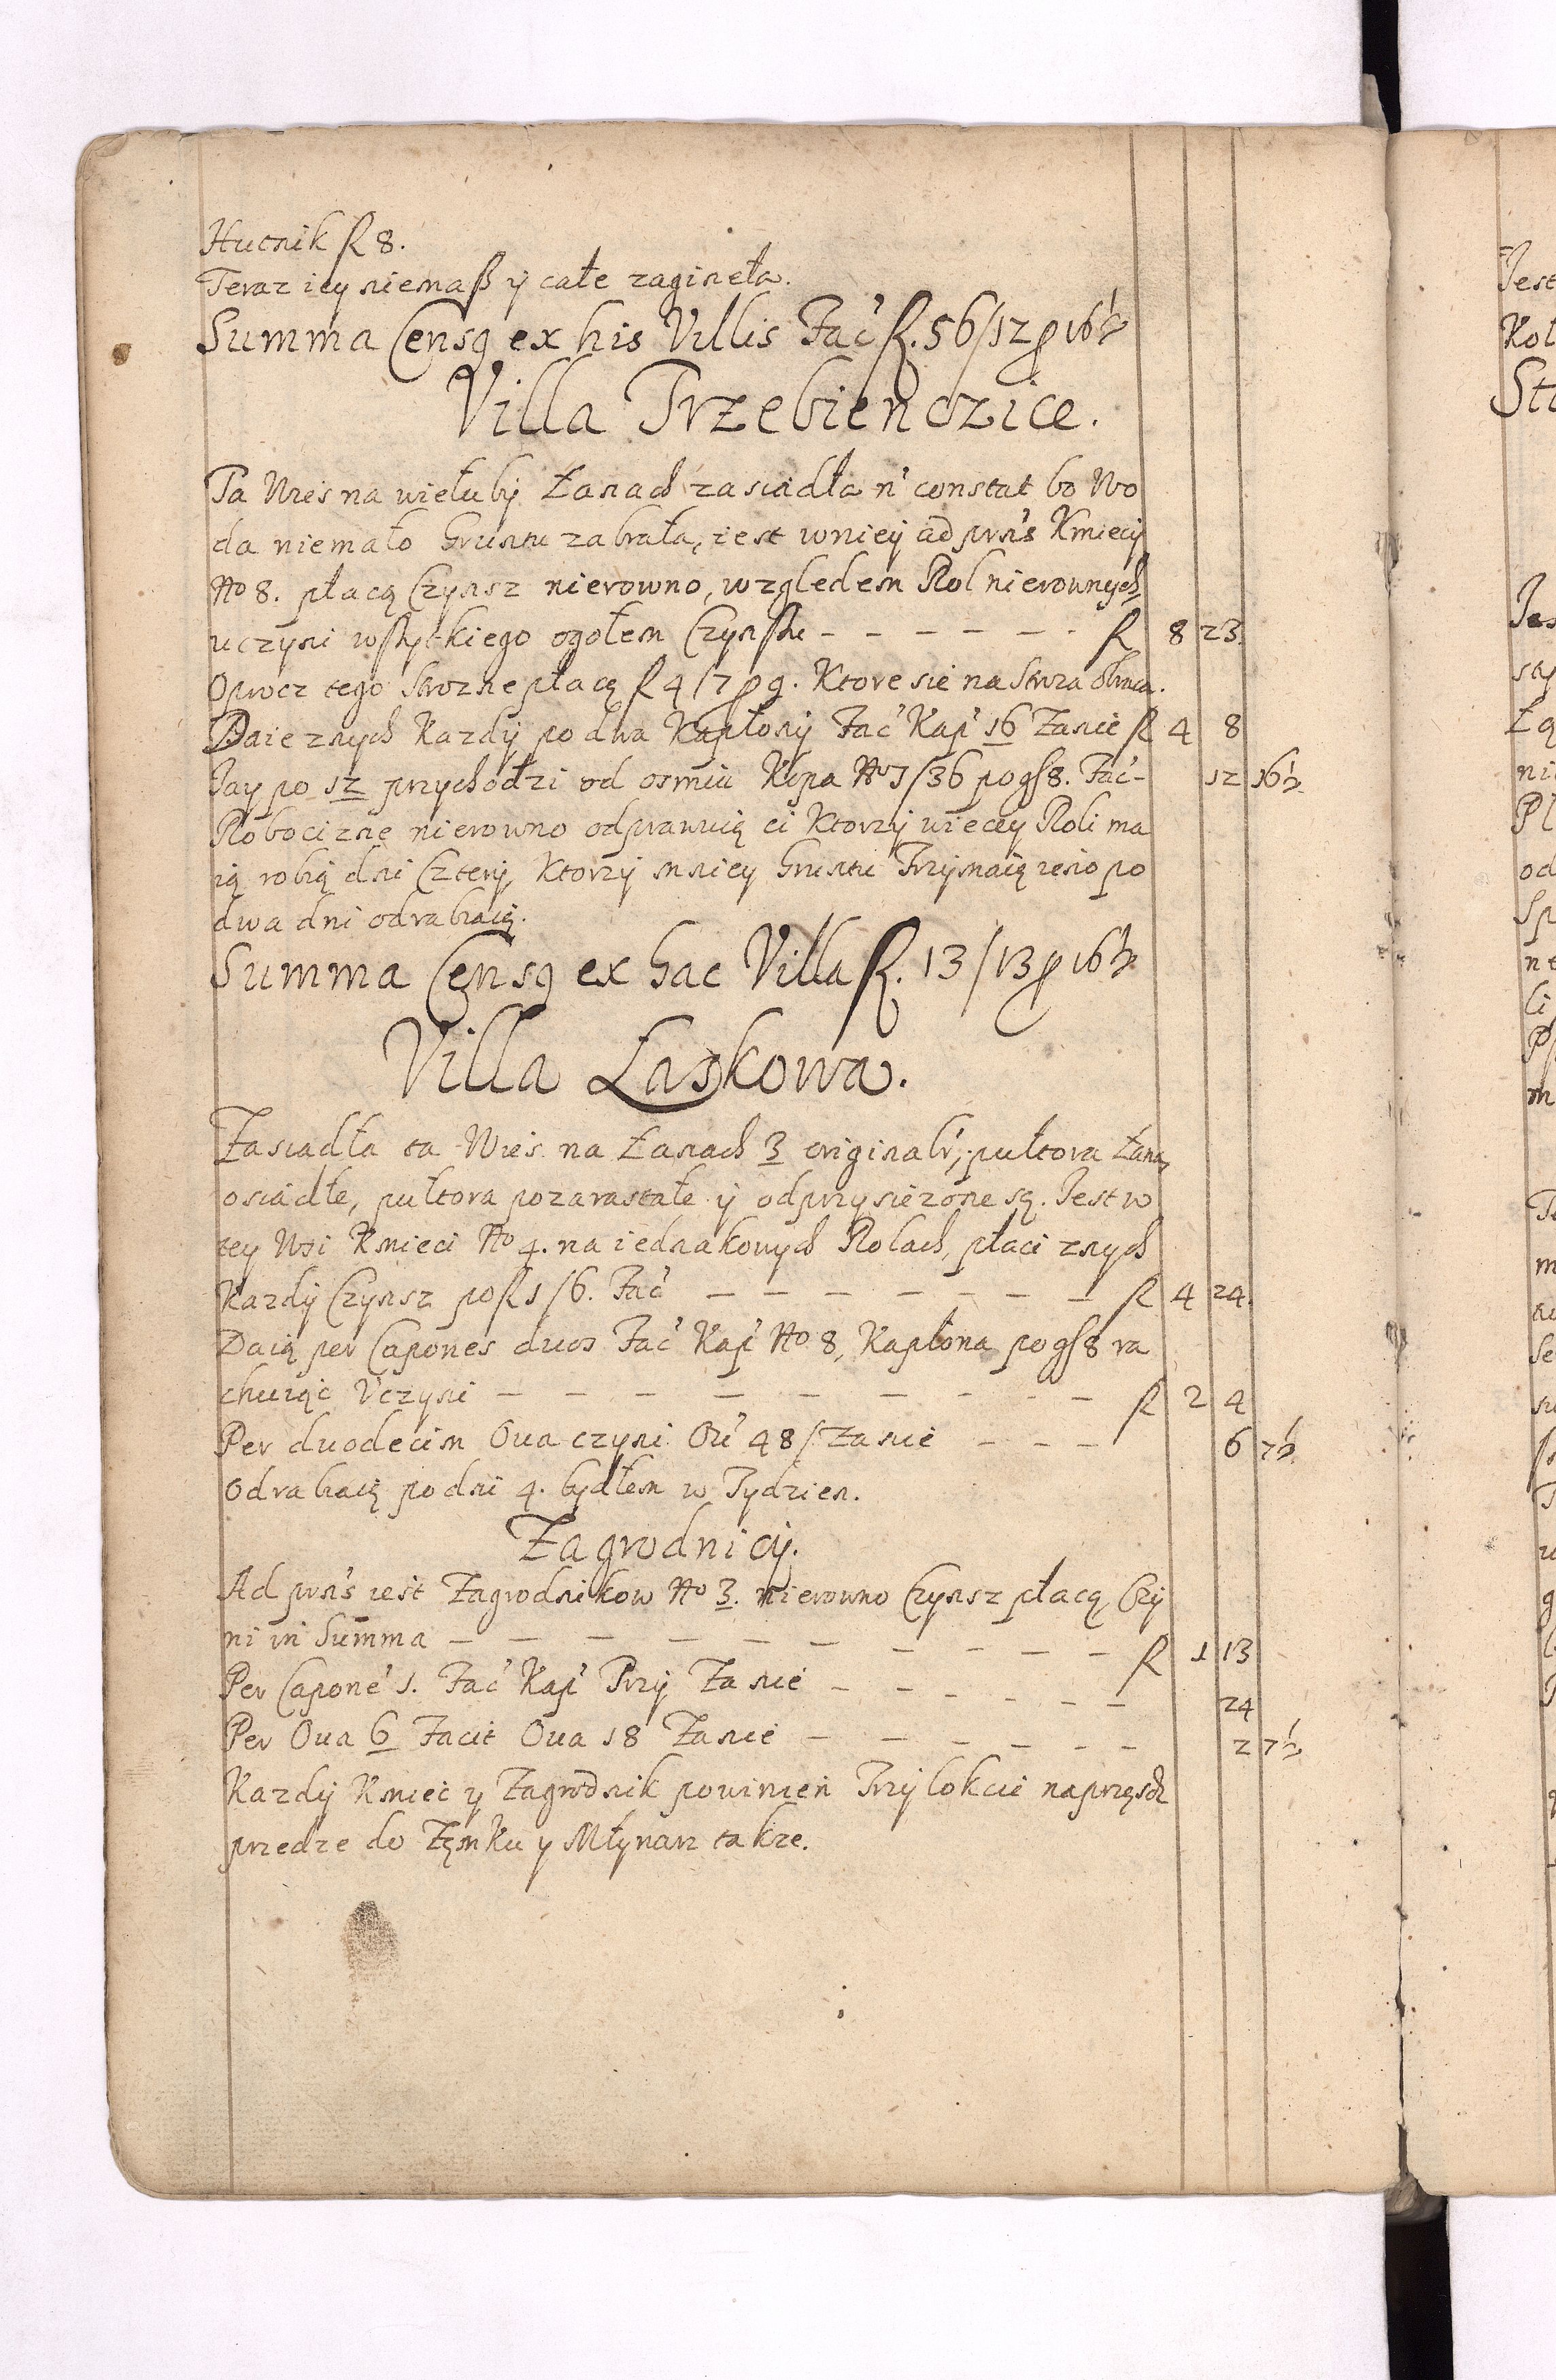 Hutnik f 8.
Teraz iey niemaß y całe zagineła.
Summa Censq ex his Villis Fac' f. 56/12 ꝑ 16½
Villa Trzebienczice.
Ta Wies na wieluby Łanach zasiadła n' constat bo Wo
da niemało Gruntu zabrała, iest wniey ad prns Kmiecy
No 8. płacą Czynsz nierowno, wzgledem Rol nierownych
uczyni wßytkiego ogołem Czynßu — — — — — — f 8 23.
Oprocz tego Strozne płacą f 4/7 ꝑ 9. Ktore sie na Stroza obraca.
Daie znych Kazdy po dwa Kapłony Fac' Kap' 16 Zanie f 4 8
Jay po 12 przychodzi od osmiu Kopa No 1/36 po gſ 8. Fac' - 12 16½.
Robocizne nierowno odprawuią ci Ktorzy wiecey Roli ma
ią robią dni Cztery, Ktorzy mniey Gruntu Trzymaią ieno po
dwa dni odrabiaią.
Summa Censq ex hac Villa f. 13/13 ꝑ 16½
Villa Łaskowa.
Zasiadła ta Wies na Łanach 3 originalr', pułtora Łana
osiadłe, pułtora pozarastałe y odprzysiezone są. Jest w
tey Wsi Kmieci No 4. na iednakowych Rolach, płaci znych
Kazdy Czynsz po f 1/6. Fac' — — — — — — — f 4 24.
Daią per Capones duos Fac' Kap' No 8, Kapłona po gſ 8 ra
chuiąc Uczyni — — — — — — — — f 2 4
Per duodecim Oua czyni Ou' 48/ Zanie — — — 6 7½.
Odrabiaią po dni 4. bydłem w Tydzien.
Zagrodnicy.
Ad prns iest Zagrodnikow No 3. nierowno Czynsz płacą Czy
ni in Summa — — — — — — — — — f 1 13
Per Capone' 1. Fac' Kap' Trzy Zanie — — — — — — 24
Per Oua 6 Facit Oua 18 Zanie — — — — — — 2 7½.
Kazdy Kmiec y Zagrodnik powinien Trzy lokcie naprząśdz
przedze do Zęmku y Młynarz takze.